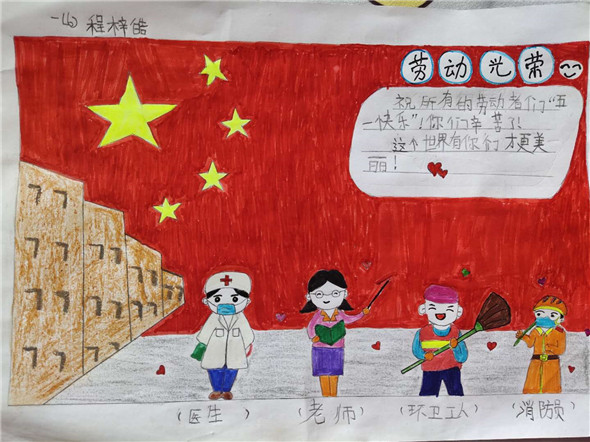 一(4) 程梓皓
劳动光荣
祝所有的劳动者们“五
一快乐”！你们辛苦了！
这个世界有你们才更美
丽！
(医生) (老师) (环卫工人) (消防员)